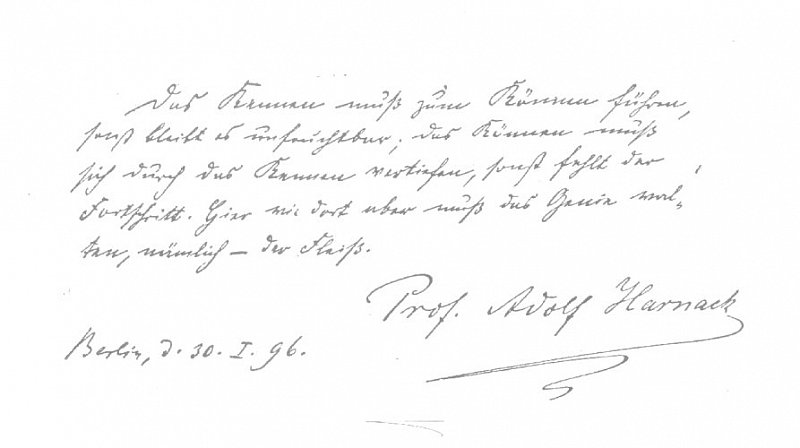 Das Kennen muß zum Können führen,
sonst bleibt es unfruchtbar; das Können muß
sich durch das Kennen vertiefen, sonst fehlt der
Fortschritt. Hier wie dort aber muß das Genie wal-
ten, nämlich – der Fleiß.
Prof. Adolf Harnack
Berlin, d. 30. I. 96.